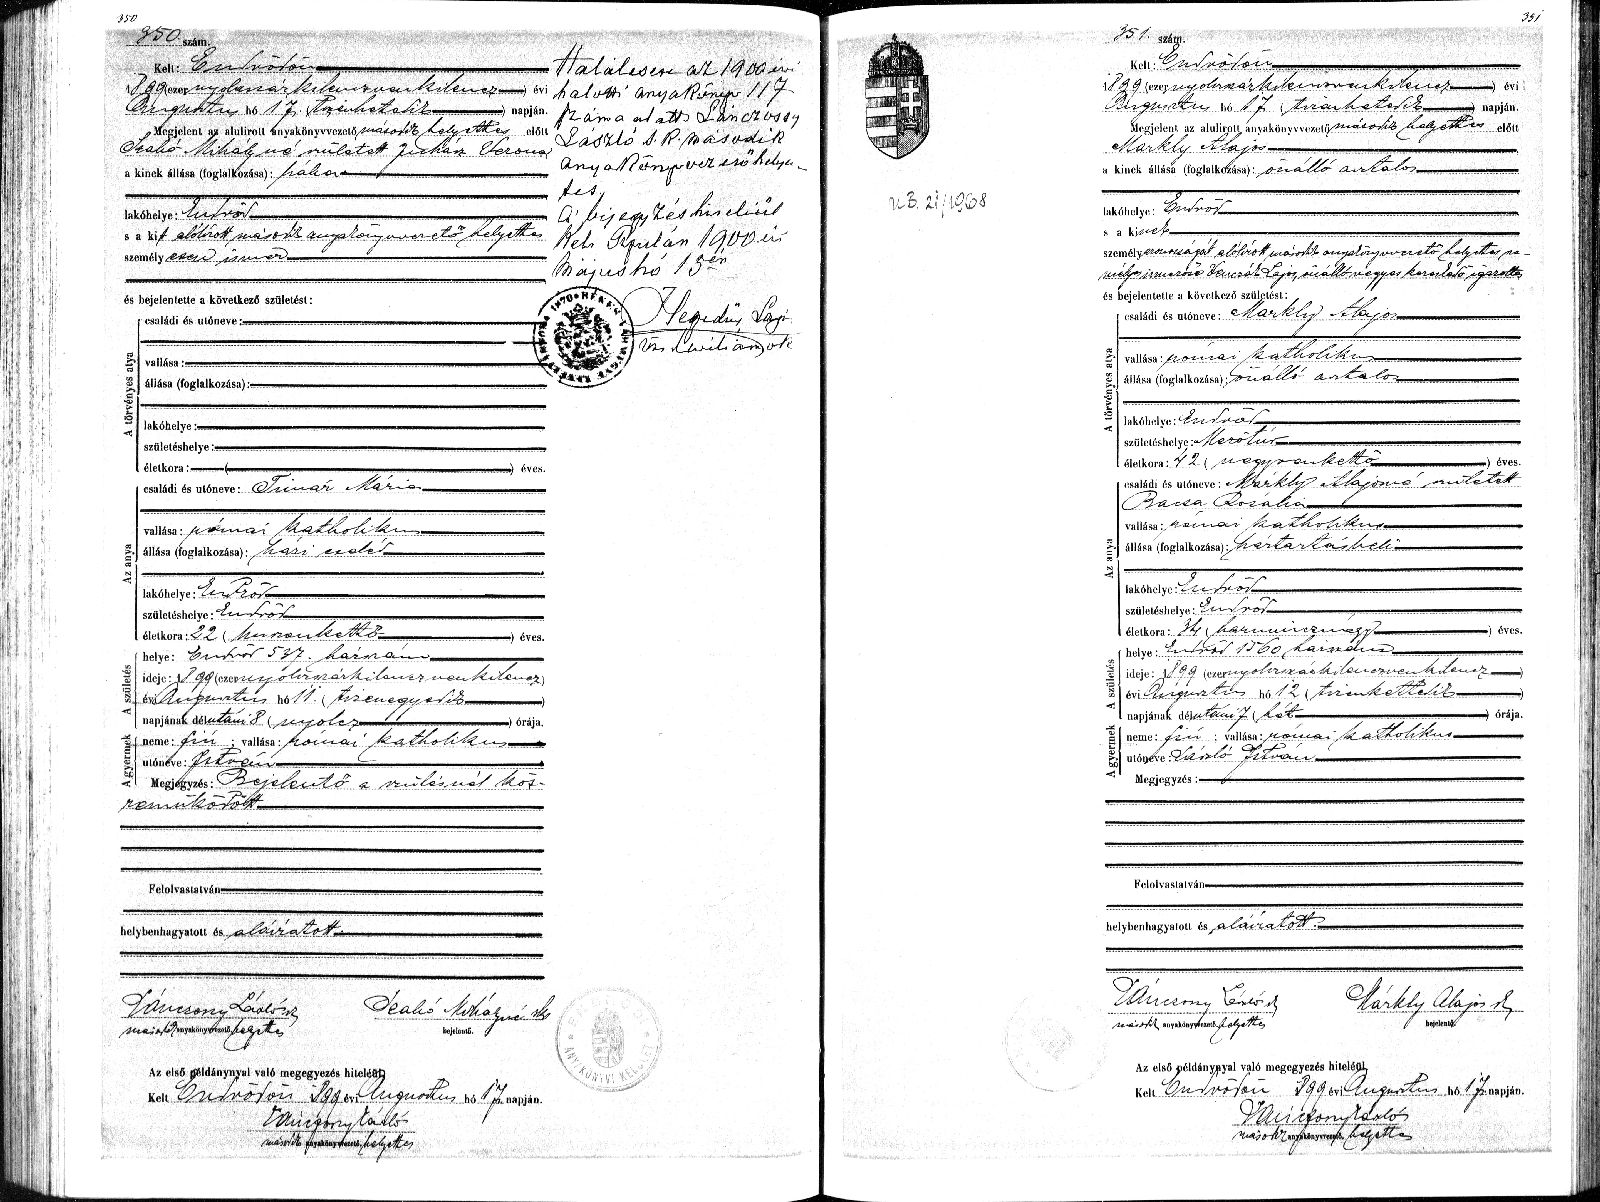 350
350 szám.
Kelt: Endrődön
1899 (ezernyolczszázkilenczvenkilencz) évi
Augusztus hó 17. (tizenhetedik) napján.
Megjelent az alulirott anyakönyvvezető második helyettes előtt
Szabó Mihályné született Verona
a kinek állása (foglalkozása): bába
lakóhelye: Endrőd
s a kit alólírott második anyakönyvvezető helyettes
személyesen ismer
és bejelentette a következő születést:
A törvényes atya
családi és utóneve:
vallása:
állása (foglalkozása):
lakóhelye:
születéshelye:
életkora: ( ) éves.
Az anya
családi és utóneve: Timár Mária
vallása: római katholikus
állása (foglalkozása): házi cseléd
lakóhelye: Endrőd
születéshelye: Endrőd
életkora: 22 (huszonkettő) éves.
A születés
helye: Endrőd 537. házszám
ideje: 1899 (ezernyolczszázkilenczvenkilencz)
évi Augusztus hó 11. (tizenegyedik)
napjának délutáni 8 (nyolcz) órája.
A gyermek
neme: fiú; vallása: római katholikus
utóneve: István
Megjegyzés: Bejelentő a szülésnél köz-
reműködött
Felolvastatván
helybenhagyatott és aláiratott.
Lánczony László
második anyakönyvvezető helyettes
Szabó Mihályné
bejelentő.
Az első példánynyal való megegyezés hiteléül
Kelt Endrődön 899 évi Augusztus hó 17 napján.
Lánczony László
második anyakönyvvezető helyettes
Halálesete az 1900 évi
halotti anyakönyv 117
száma alatt
László s. k. második
anyakönyvvezető helyet-
tes,
A bejegyzés hiteléül
Kelt Gyulán 1900 évi
május hó 15én
Hegedűs
351
351. szám.
Kelt: Endrődön
1899 (ezernyolczszázkilenczvenkilencz) évi
Augusztus hó 17. (tizenhetedik) napján.
Megjelent az alulirott anyakönyvvezető második helyettes előtt
Márkly Alajos
a kinek állása (foglalkozása): önálló asztalos
lakóhelye: Endrőd
s a kinek
személyazonosságát alólírott második anyakönyvvezető helyettes sze-
mélyes ismerőse Lajos, önálló vegyes kereskedő, igazolta,
és bejelentette a következő születést:
A törvényes atya
családi és utóneve: Márkly Alajos
vallása: római katholikus
állása (foglalkozása): önálló asztalos
lakóhelye: Endrőd
születéshelye: Mezőtúr
életkora: 42 (negyvenkettő) éves.
Az anya
családi és utóneve: Márkly Alajosné született
Bacsa Rozália
vallása: római katholikus
állása (foglalkozása): háztartásbeli
lakóhelye: Endrőd
születéshelye: Endrőd
életkora: 34 (harmincznégy) éves.
A születés
helye: Endrőd 1560 házszám
ideje: 1899 (ezernyolczszázkilenczvenkilencz)
évi Augusztus hó 12 (tizenkettedik)
napjának délutáni 7 (hét) órája.
A gyermek
neme: fiú; vallása: római katholikus
utóneve: László István
Megjegyzés:
Felolvastatván
helybenhagyatott és aláiratott.
Lánczony László
második anyakönyvvezető helyettes
Márkly Alajos
bejelentő.
Az első példánynyal való megegyezés hiteléül
Kelt Endrődön 899 évi Augusztus hó 17 napján.
Lánczony László
második anyakönyvvezető helyettes